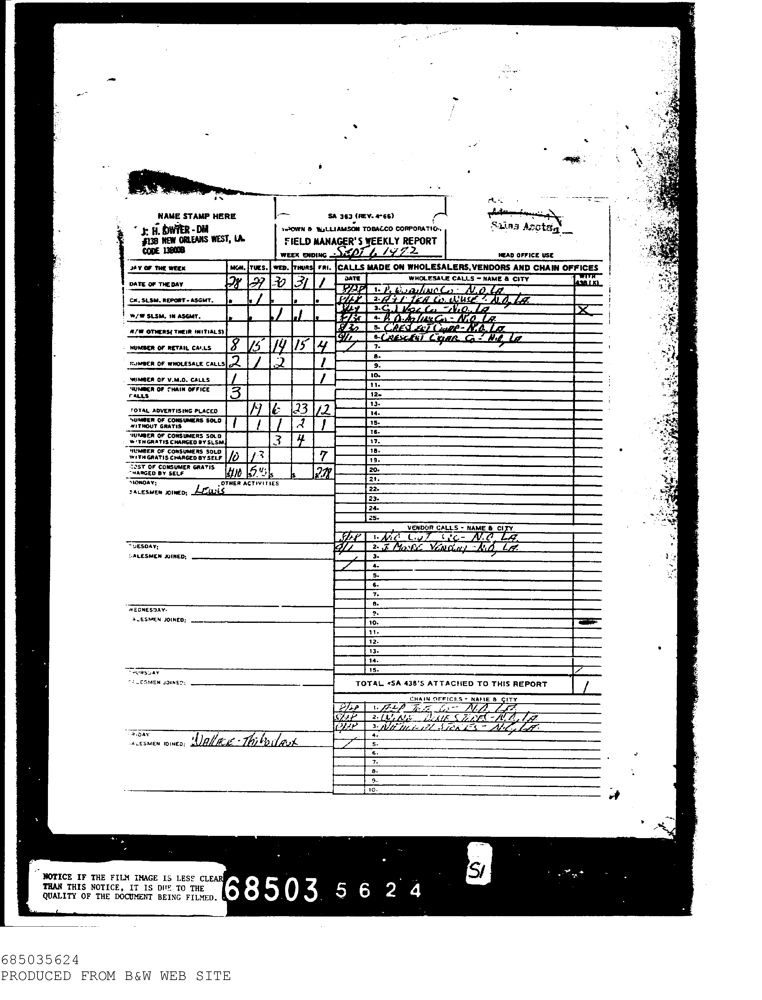 NAME STAMP HERE
J. H. DWYER - DM
#13B NEW ORLEANS WEST, LA.
CODE
SA 363 (REV. 4-66)
BROWN & WILLIAMSON TOBACCO CORPORATION
FIELD MANAGER'S WEEKLY REPORT
WEEK ENDING Sept 1, 1972
HEAD OFFICE USE
DAY OF THE WEEK MON. TUES. WED. THURS FRI.
DATE OF THE DAY 28 29 30 31 1
CK. SLSM. REPORT - ASGMT. 1
W/W SLSM. IN ASGMT. 1 1
W/W OTHERS (THEIR INITIALS)
NUMBER OF RETAIL CALLS 8 15 14 15 4
NUMBER OF WHOLESALE CALLS 2 1 2 1
NUMBER OF V.M.O. CALLS 1 1
NUMBER OF CHAIN OFFICE CALLS 3
TOTAL ADVERTISING PLACED 19 6 23 12
NUMBER OF CONSUMERS SOLD
WITHOUT GRATIS 1 1 1 2 1
NUMBER OF CONSUMERS SOLD
WITH GRATIS CHARGED BY SLSM. 3 4
NUMBER OF CONSUMERS SOLD
WITH GRATIS CHARGED BY SELF 10 13 7
COST OF CONSUMER GRATIS
CHARGED BY SELF
MONDAY: OTHER ACTIVITIES
SALESMEN JOINED: Lewis
TUESDAY:
SALESMEN JOINED:
WEDNESDAY:
SALESMEN JOINED:
THURSDAY
SALESMEN JOINED:
FRIDAY
SALESMEN JOINED: Wallace - Thibodaux
CALLS MADE ON WHOLESALERS, VENDORS AND CHAIN OFFICES
DATE WHOLESALE CALLS - NAME & CITY WITH 438 (X)
8/28 1. N.O. LA
8/28 2. N.O, LA
3. N.O. LA X
4. N.O. LA
8/30 5. CRESCENT N.O, LA
9/1 6. CRESCENT CIGAR Co - N.O, LA
7.
8.
9.
10.
11.
12.
13.
14.
15.
16.
17.
18.
19.
20.
21.
22.
23.
24.
25.
VENDOR CALLS - NAME & CITY
8/28 1. N.O, LA.
9/1 2. N.O, LA.
3.
4.
5.
6.
7.
8.
9.
10.
11.
12.
13.
14.
15.
TOTAL #SA 438'S ATTACHED TO THIS REPORT 1
CHAIN OFFICES - NAME & CITY
8/28 1. A&P N.O, LA.
8/28 2. N.O, LA
8/28 3. N.O, LA.
4.
5.
6.
7.
8.
9.
10.
51
NOTICE IF THE FILM IMAGE IS LESS CLEAR
THAN THIS NOTICE, IT IS DUE TO THE
QUALITY OF THE DOCUMENT BEING FILMED.
68503 5624
685035624
PRODUCED FROM B&W WEB SITE